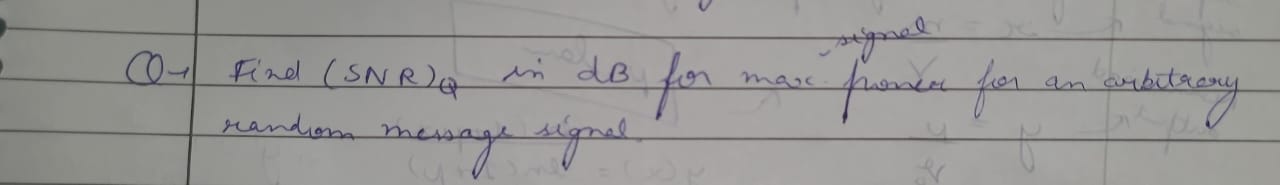 signal
Q→ Find (SNR)Q in dB for max. power for an arbitrary
random message signal.